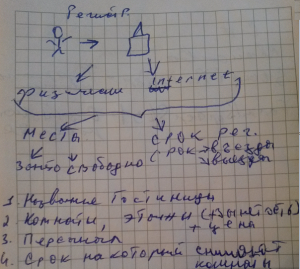 Регистр.
физически Internet
Места Срок рег.
Занято Свободно (срок въезда
выезда)
1. Название Гостиницы
2 Комнаты, этажи
+ цена
3. Персонал
4. Срок на который снимают
комнаты